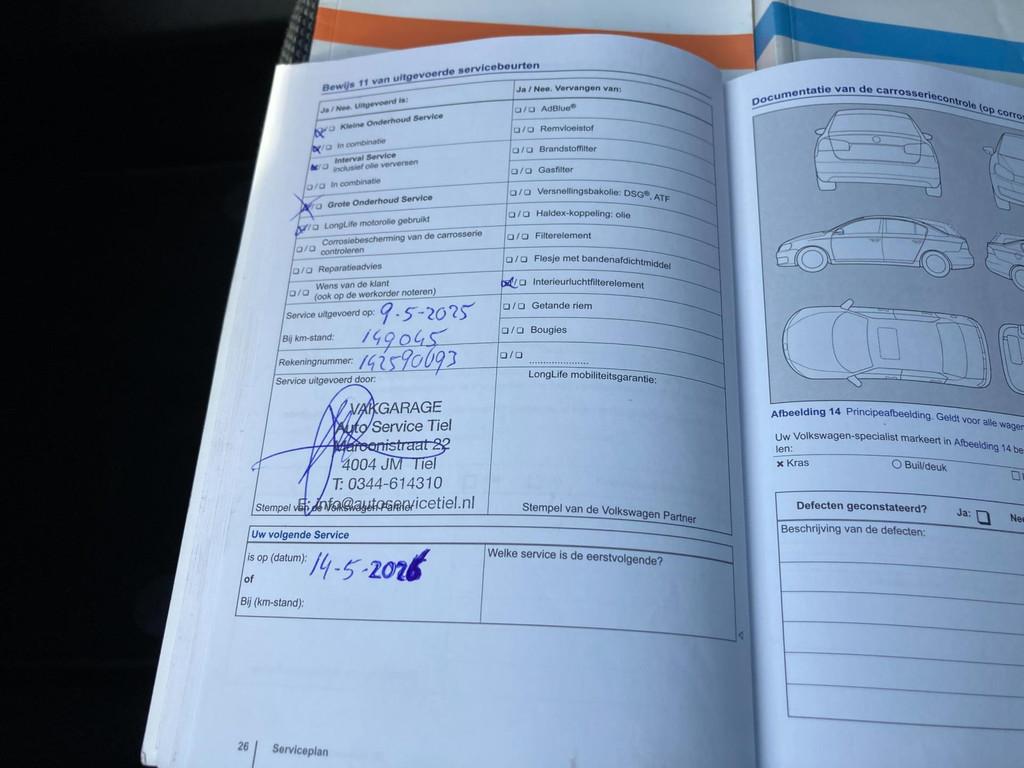 Bewijs 11 van uitgevoerde servicebeurten
Ja / Nee. Uitgevoerd is:
Kleine Onderhoud Service
In combinatie
Interval Service
Inclusief olie verversen
In combinatie
Grote Onderhoud Service
LongLife motorolie gebruikt
Corrosiebescherming van de carrosserie
controleren
Reparatieadvies
Wens van de klant
(ook op de werkorder noteren)
Service uitgevoerd op: 9-5-2025
Bij km-stand: 149045
Rekeningnummer: 142590093
Service uitgevoerd door:
VAKGARAGE
Auto Service Tiel
Marconistraat 22
4004 JM Tiel
T: 0344-614310
E: info@autoservicetiel.nl
Stempel van de Volkswagen Partner
Ja / Nee. Vervangen van:
AdBlue®
Remvloeistof
Brandstoffilter
Gasfilter
Versnellingsbakolie: DSG®, ATF
Haldex-koppeling: olie
Filterelement
Flesje met bandenafdichtmiddel
Interieurluchtfilterelement
Getande riem
Bougies
LongLife mobiliteitsgarantie:
Stempel van de Volkswagen Partner
Uw volgende Service
is op (datum): 14-5-2026
of
Bij (km-stand):
Welke service is de eerstvolgende?
26 | Serviceplan
Documentatie van de carrosseriecontrole (op
Afbeelding 14 Principeafbeelding. Geldt voor alle
Uw Volkswagen-specialist markeert in Afbeelding 14
len:
Kras
Buil/deuk
Defecten geconstateerd? Ja:
Beschrijving van de defecten: